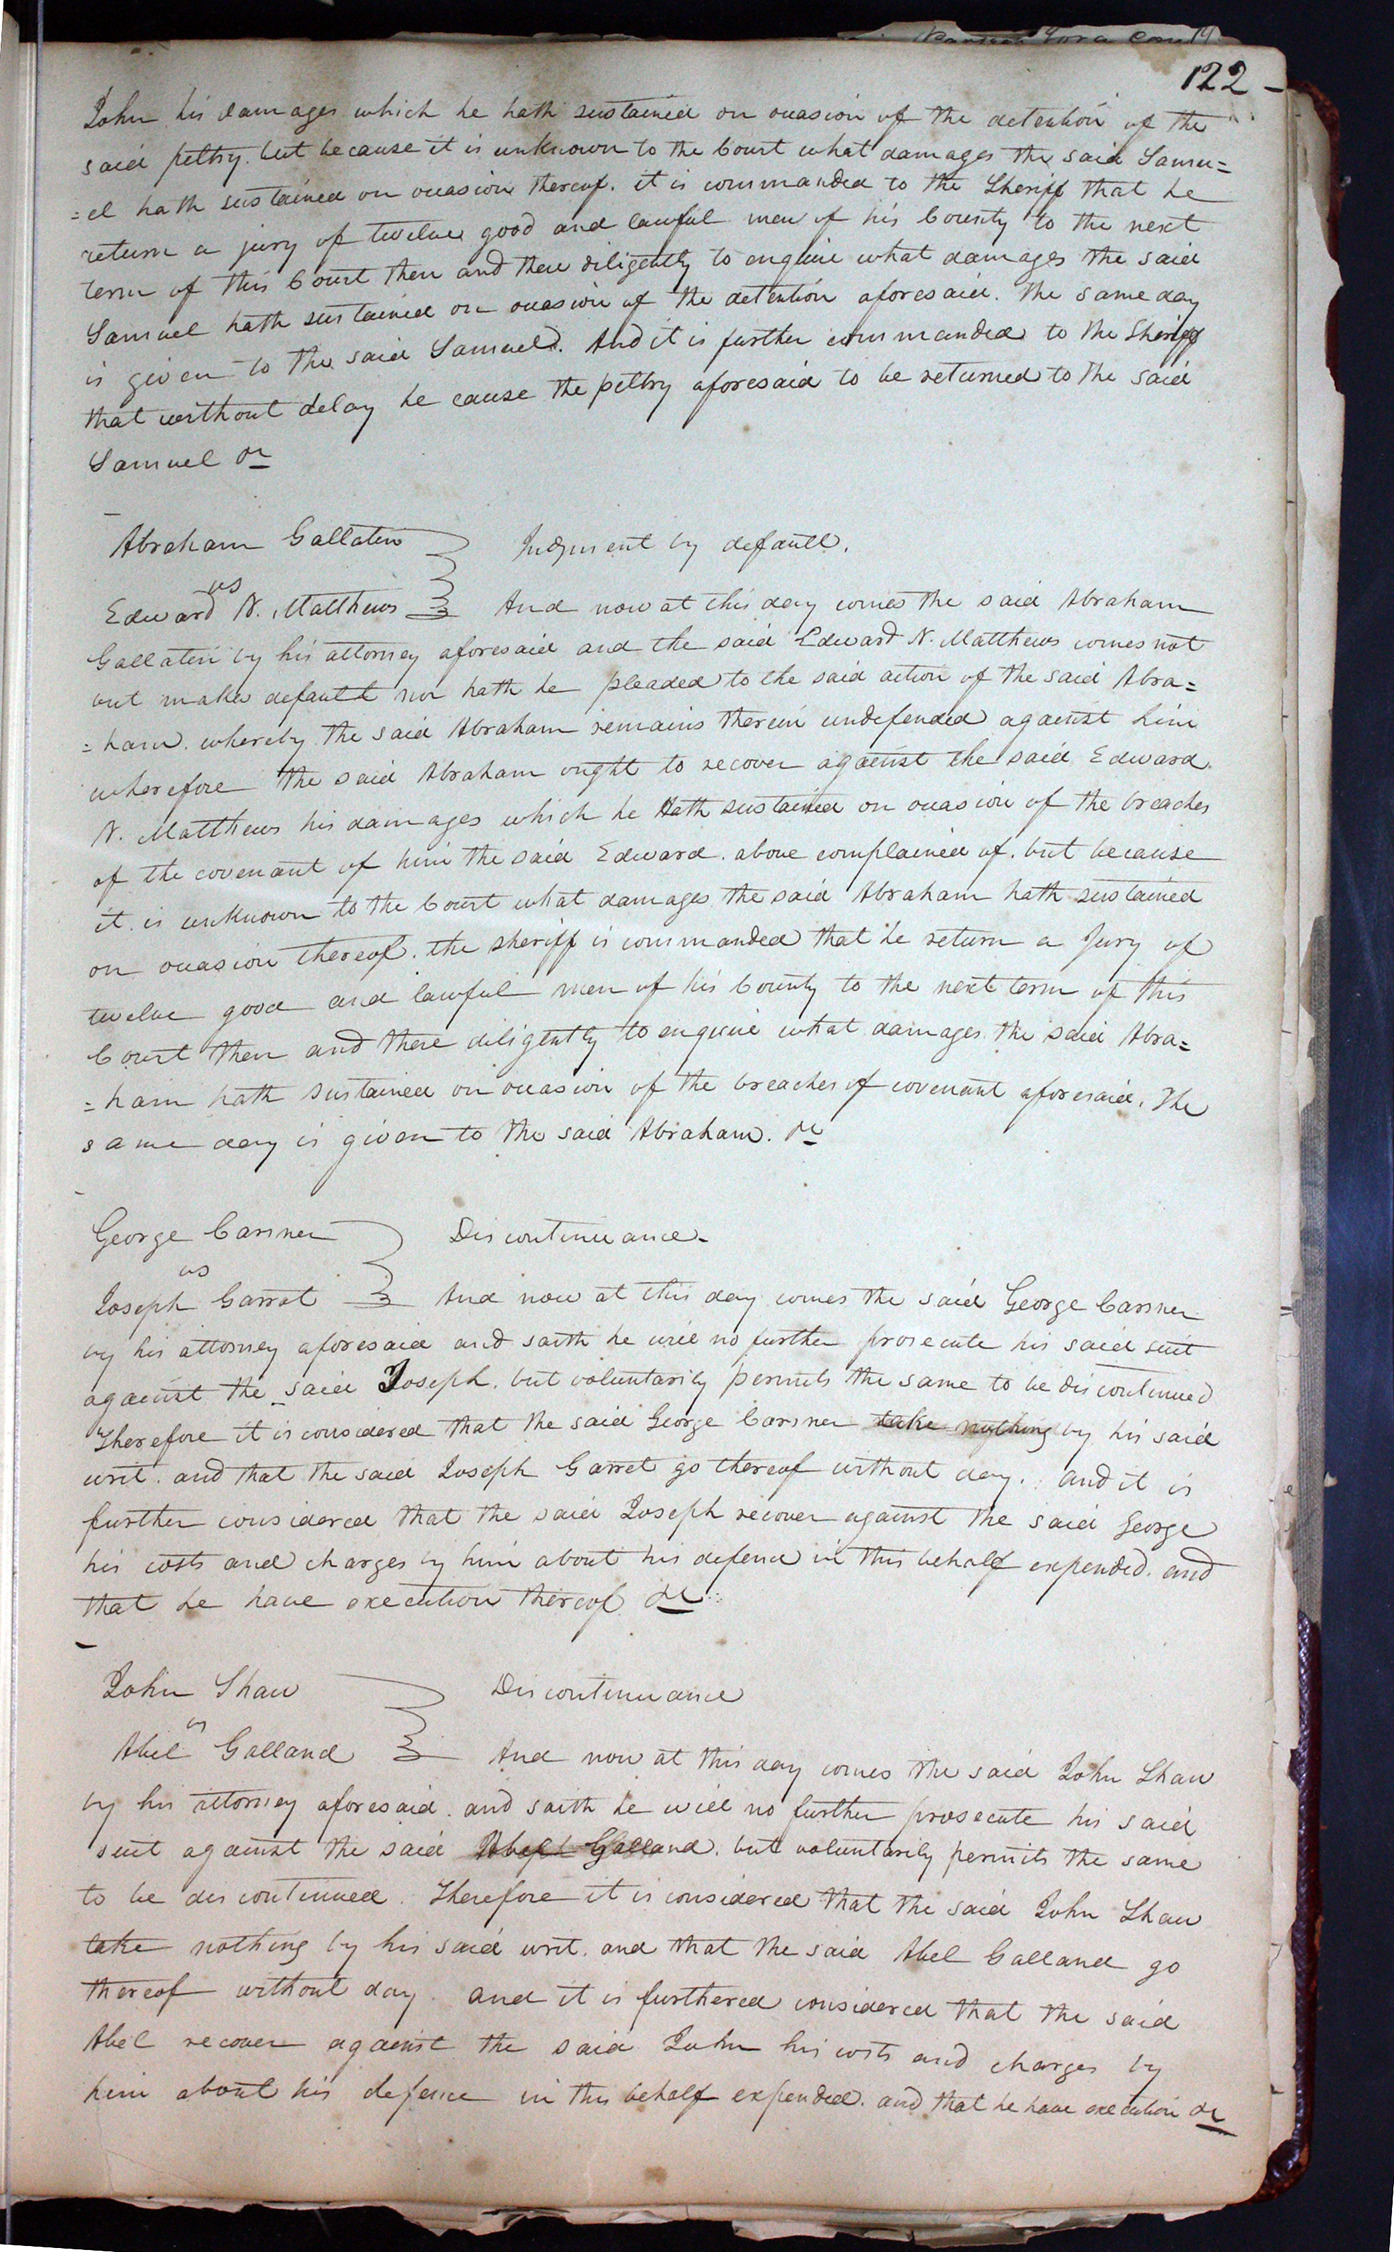 122 -
John his damages which he hath sustained on occasion of the detention of the
said peltry. but because it is unknown to the Court what damages the said Samu=
=el hath sustained on occasion thereof. it is commanded to the Sheriff that he
return a jury of twelve good and lawful men of his County to the next
term of this Court then and there diligently to enquire what damages the said
Samuel hath sustained on occasion of the detention aforesaid. The same day
is given to the said Samuel. And it is further commanded to the Sheriff
that without delay he cause the peltry aforesaid to be returned to the said
Samuel &c
Abraham Gallatin Judgment by default.
vs
Edward N. Matthews And now at this day comes the said Abraham
Gallatin by his attorney aforesaid and the said Edward N. Matthews comes not
but makes default nor hath he pleaded to the said action of the said Abra=
=ham. whereby the said Abraham remains therein undefended against him
wherefore the said Abraham ought to recover against the said Edward
N. Matthews his damages which he hath sustained on occasion of the breaches
of the covenant of him the said Edward. above complained of. but because
it is unknown to the Court what damages the said Abraham hath sustained
on occasion thereof. the sheriff is commanded that he return a Jury of
twelve good and lawful men of his County to the next term of this
Court then and there diligently to enquire what damages the said Abra=
=ham hath sustained on occasion of the breaches of covenant aforesaid. The
same day is given to the said Abraham. &c
George Carsner Discontinuance.
vs
Joseph Garrat And now at this day comes the said George Carsner
by his attorney aforesaid and saith he will no further prosecute his said suit
against the said Joseph. but voluntarily permits the same to be discontinued
Therefore it is considered that the said George Carsner take nothing by his said
writ. and that the said Joseph Garret go thereof without day. and it is
further considered that the said Joseph recover against the said George
his costs and charges by him about his defence in this behalf expended. and
that he have execution thereof &c
John Shaw Discontinuance
vs
Abel Galland And now at this day comes the said John Shaw
by his attorney aforesaid. and saith he will no further prosecute his said
suit against the said Abel Galland. but voluntarily permits the same
to be discontinued. Therefore it is considered that the said John Shaw
take nothing by his said writ. and that the said Abel Galland go
thereof without day. and it is furthered considered that the said
Abel recover against the said John his costs and charges by
him about his defence in this behalf expended. and that he have execution &c